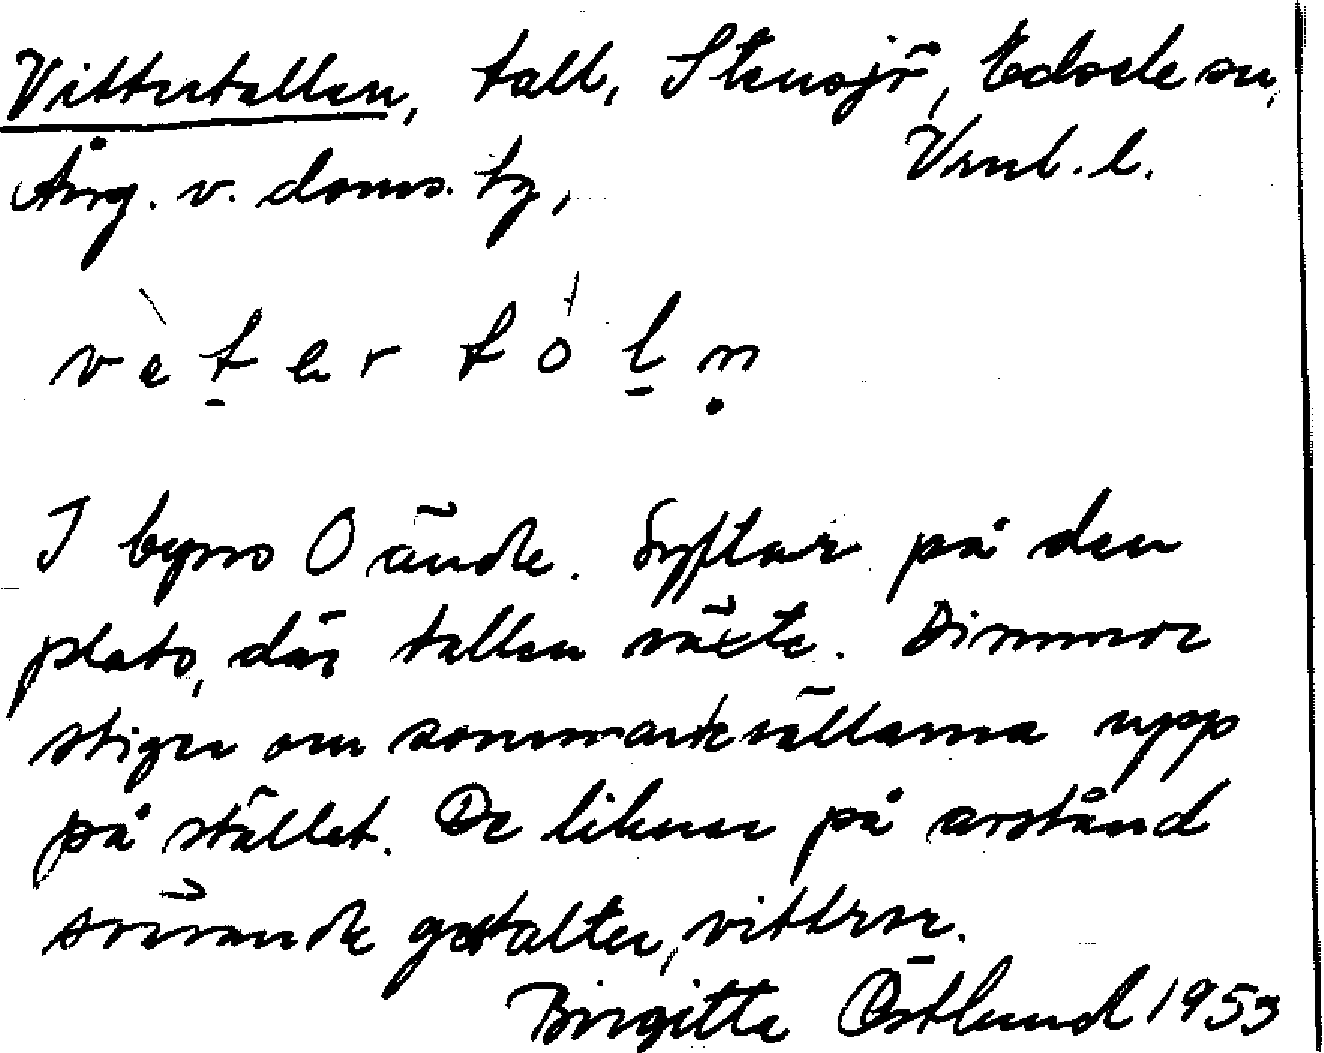 Vittertallen, tall, Stensjö, Edsele sn,
Ång. v. doms. tg, Vnl. l.
vèter tólṇ
I byns O ände. Syftar på den
plats, där tallen växte. Dimmor
stiger om sommarkvällarna upp
på stället. De liknar på avstånd
svävande gestalter, vittror.
Birgitta Östlund 1953